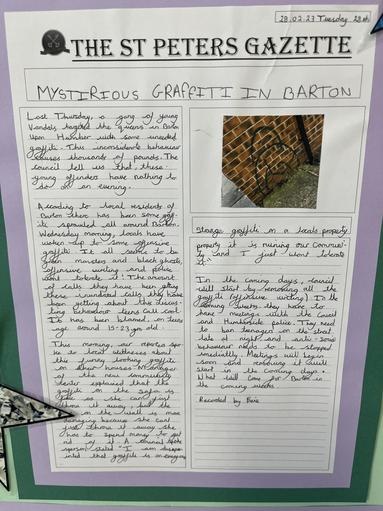 28.02.23 Tuesday 28th
THE ST PETERS GAZETTE
MYSTIRIOUS GRAFFITI IN BARTON
Last Thursday, a gang of young
Vandals targeted the queens in Barton
Upon Humber with some uneeded
graffiti. This inconsiderate behaviour
causes thousands of pounds. The
council tell us that, these
young offenders have nothing to
do on an evening.
According to local residents of
Barton there has been some graff-
iti sprawled all around Barton.
Wednesday morning, locals have
woken up to some offensive
graffiti. It all seems to be
green monsters and black ghosts,
offensive writing and police
wont tolerate it. The amount
of calls they have been getting
these hundred calls they have
been getting about the
behaviour teens call cool.
It has been blamed on teens
age around 15-23 yr old.
This morning, our reporter spo-
ke to local witnesses about
this funny looking graffiti
on their houses. Manager
of the new community
center explained that the
graffiti on the sofa is
fine as she can just
throw it away but the
on the wall is more
damaging because she can
just throw it away she
has to spend money to get
rid of it. A council spoke
sperson stated "I am disapp-
ointed that graffiti is on everyones
Strange graffiti on a locals property
property it is ruining our Commuini-
ty and I just wont tolerate
it".
In the coming days, council
will start by removing all the
graffiti (offensive writing). In the
coming weeks, they have to
have meetings with the Council
and Humberside police. They need
to ban teenagers on the street
late at night and anti-social
behaviour needs to be stopped
imediatly. Meetings will begin
soon and resolving it will
start in the coming days.
What will come for Barton in
the coming weeks.
Recorded by